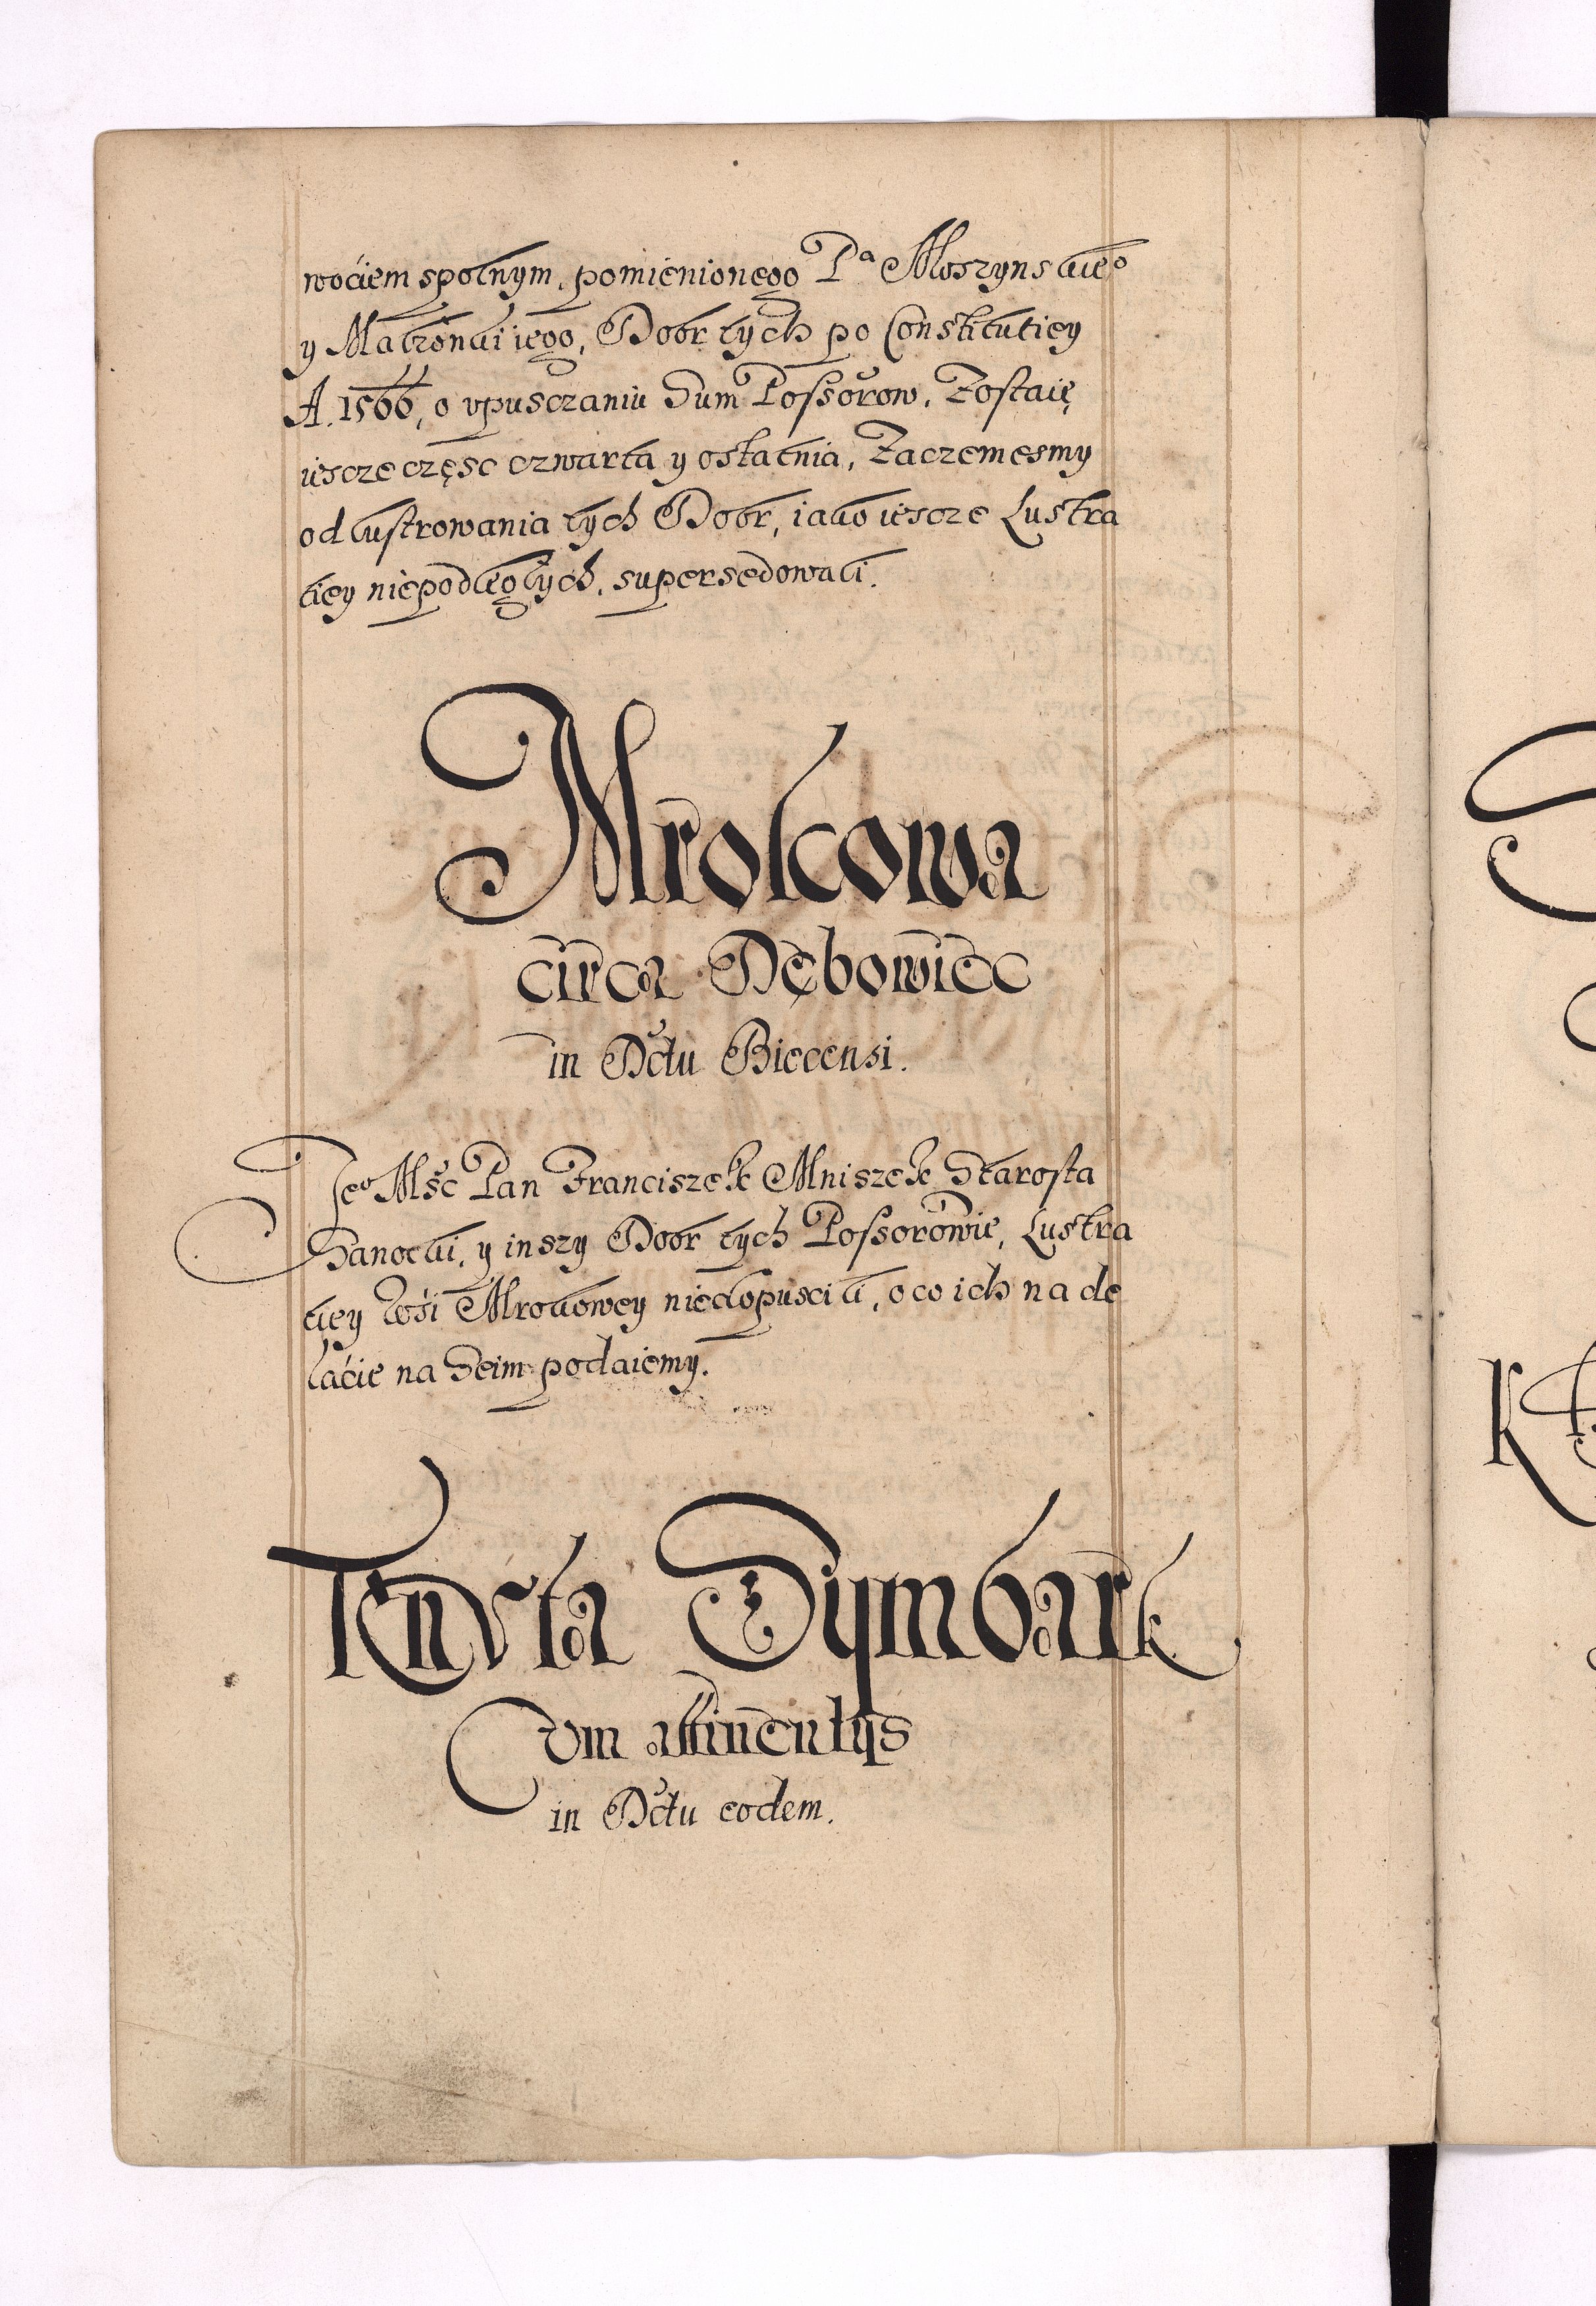 wociem spolnym, pomienionego Pᵃ Moszynskieᵒ
y Małzonki iego, Dobr tych po Constitutiey
A. 1566, o vpusczaniu Sum Possorow, Zostaię
iescze częsc czwarta y ostatnia, Zaczemesmy
od lustrowania tych Dobr, iako iescze Lustra
tiey niepodległych, supersedowali.
Mrokowa
circa Dębowiec
in Dctu Biecensi.
Jeᵒ Mśc Pan Franciszek Mniszek Starosta
Sanocki, y inszy Dobr tych Possorowie, Lustra
tiey Wśi Mrokowey niedopuscili, o co ich na de
lacie na Seim podaiemy.
Tenuta Sijmbark
Cum attinentijs
in Dctu eodem.